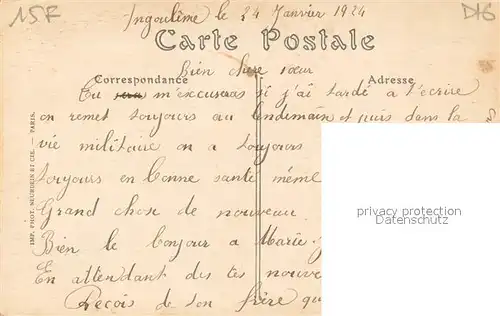 15F
D16
Ingoulême le 24 Janvier 1924
Carte Postale
Bien chere sœur
Correspondance
Adresse
Tu m'excuseras si j'ai tardé a t'ecrire
on remet toujours au lendemain et puis dans la
vie militaire on a toujours
toujours en bonne santé même
Grand chose de nouveau
Bien le bonjour a Marie
En attendant des tes nouve
Reçois de ton frère qu
IMP. PHOT. NEURDEIN ET CIE. — PARIS.
privacy protection
Datenschutz